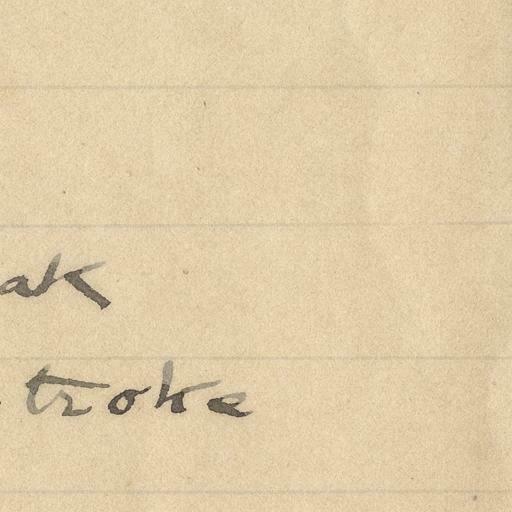 ak
troke